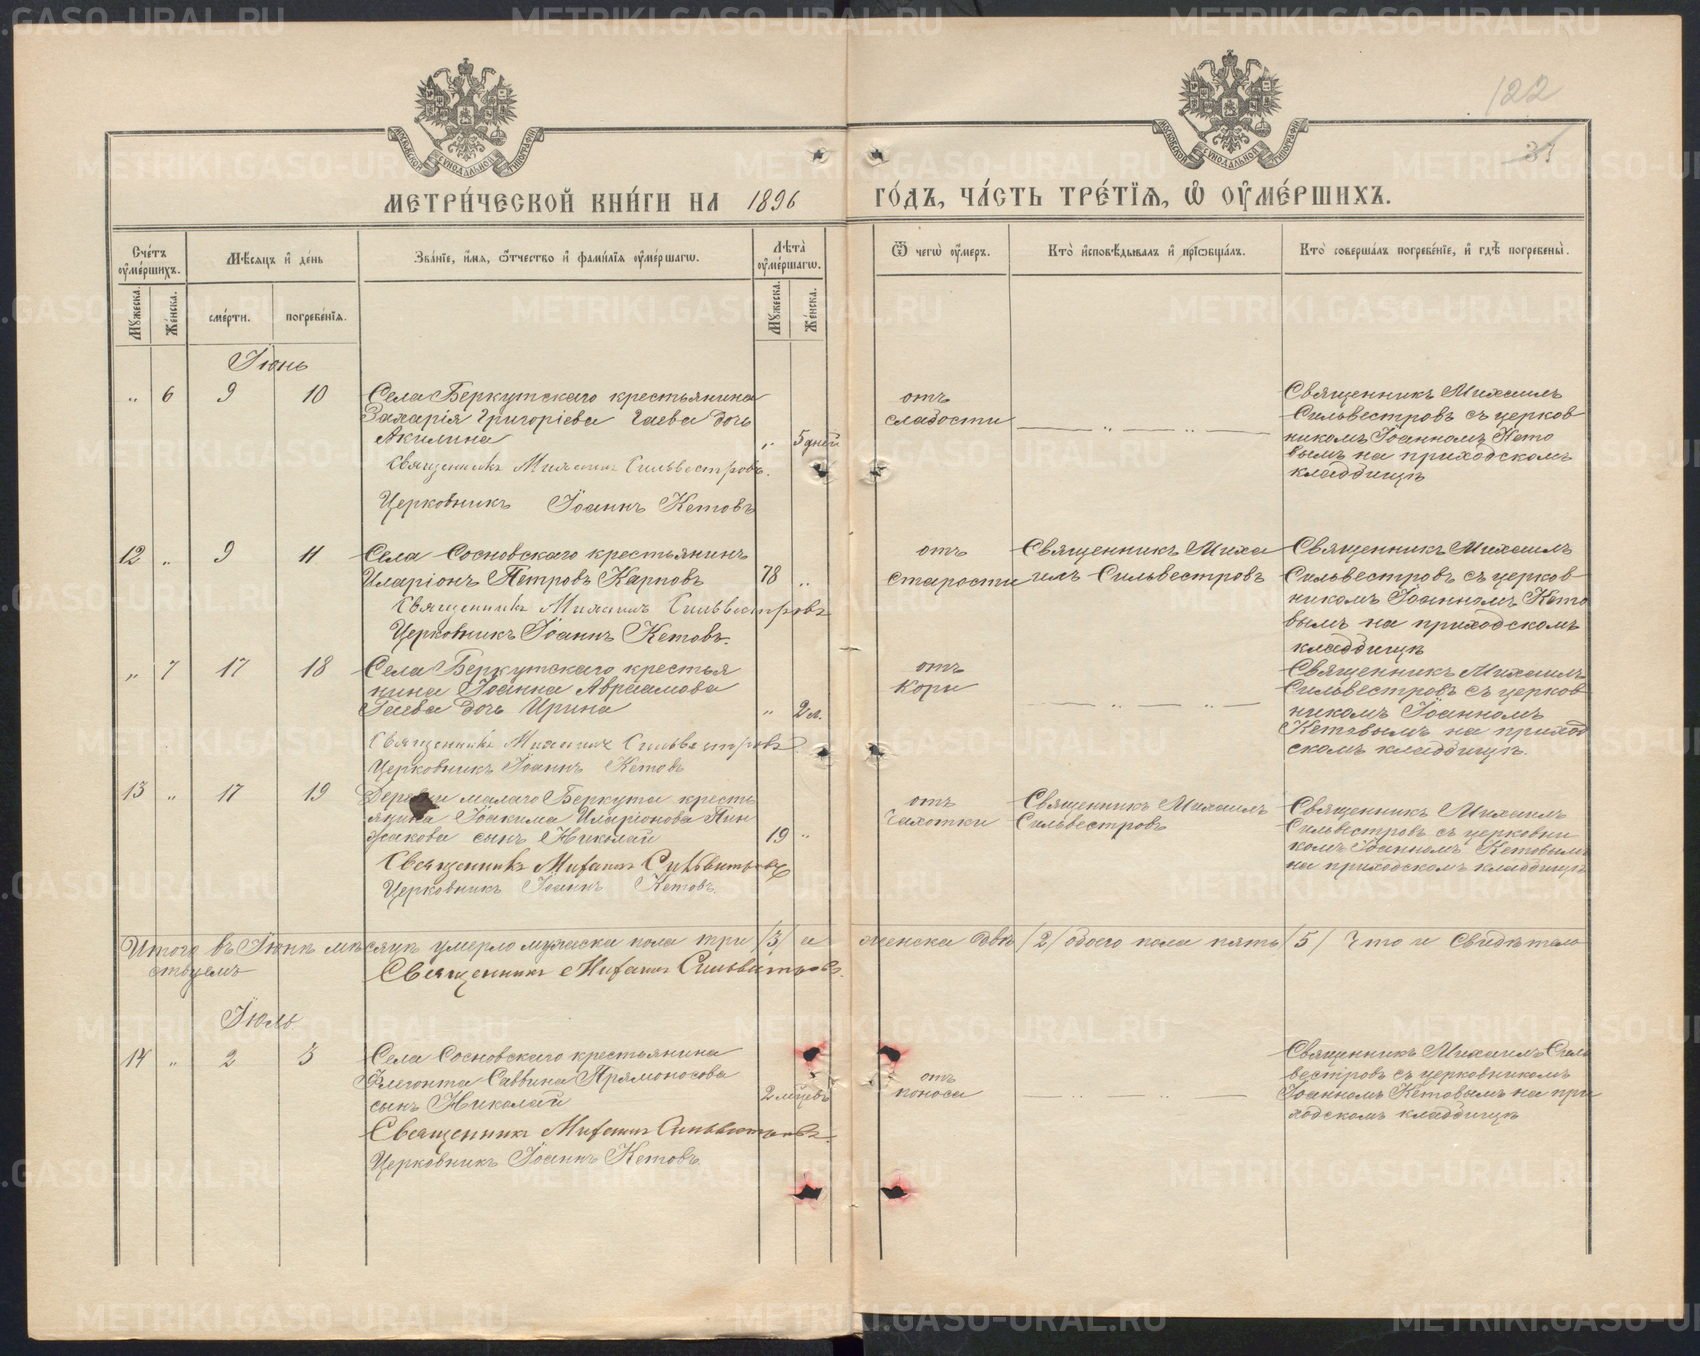 122
31
МЕТРИ́ЧЕСКОЙ КНИ́ГИ НА 1896 ГО́ДЪ, ЧА́СТЬ ТРЕ́ТІѦ, Ѡ҆ ОУ҆МЕ́РШИХЪ.
Сче́тъ оу҆ме́ршихъ.
Мѣ́сяцъ и҆ де́нь
Зва́нїе, и҆́мѧ, ѻ҆́тчество и҆ фами́лїѧ оу҆ме́ршагѡ.
Лѣ́та оу҆ме́ршагѡ.
Ѿ чегѡ̀ оу҆́меръ.
Кто̀ и҆сповѣ́дывалъ и҆ прїѡбща́лъ.
Кто̀ соверша́лъ погребе́нїе, и҆ гдѣ̀ погребены̀.
Мꙋ́жеска.
Же́нска.
сме́рти.
погребе́нїѧ.
Мꙋ́жеска.
Же́нска.
Іюнь
„ 6 9 10 Села Беркутскаго крестьянина
Захарія Григоріева Гаева дочь
Акилина „ 5 дней
Священникъ Михаилъ Сильвестровъ.
Церковникъ Іоаннъ Кетовъ
отъ
слабости
— „ — „ —
Священникъ Михаилъ
Сильвестровъ съ церков
никомъ Іоанномъ Кето
вымъ на приходскомъ
кладбищѣ
12 „ 9 11 Села Сосновскаго крестьянинъ
Иларіонъ Петровъ Карповъ 78 „
Священникъ Михаилъ Сильвестровъ
Церковникъ Іоаннъ Кетовъ.
отъ
старости
Священникъ Миха
илъ Сильвестровъ
Священникъ Михаилъ
Сильвестровъ съ церков
никомъ Іоанномъ Кето
вымъ на приходскомъ
кладбищѣ
„ 7 17 18 Села Беркутскаго крестья
нина Іоанна Авраамова
Гаева дочь Ирина „ 2 л.
Священникъ Михаилъ Сильвестровъ
Церковникъ Іоаннъ Кетовъ
отъ
кори
— „ — „ —
Священникъ Михаилъ
Сильвестровъ съ церков
никомъ Іоанномъ
Кетовымъ на приход
скомъ кладбищѣ.
13 „ 17 19 Деревни малаго Беркута кресть
янина Іоакима Иларіонова Пин
жакова сынъ Николай 19 „
Священникъ Михаилъ Сильвестровъ
Церковникъ Іоаннъ Кетовъ.
отъ
Чахотки
Священникъ Михаилъ
Сильвестровъ
Священникъ Михаилъ
Сильвестровъ съ церковни
комъ Іоанномъ Кетовымъ
на приходскомъ кладбищѣ
Итого въ Іюнѣ мѣсяцѣ умерло мужеска пола три /3/ а женска двѣ /2/ обоего пола пять /5/ Что и свидѣтель
ствуемъ Священникъ Михаилъ Сильвестровъ.
Іюль
14 „ 2 3 Села Сосновскаго крестьянина
Флегонта Саввина Прямоносова
сынъ Николай 2 мѣцевъ
Священникъ Михаилъ Сильвестровъ.
Церковникъ Іоаннъ Кетовъ
отъ
поноса
— „ — „ —
Священникъ Михаилъ Силь
вестровъ съ церковникомъ
Іоанномъ Кетовымъ на при
ходскомъ кладбищѣ
METRIKI.GASO-URAL.RU